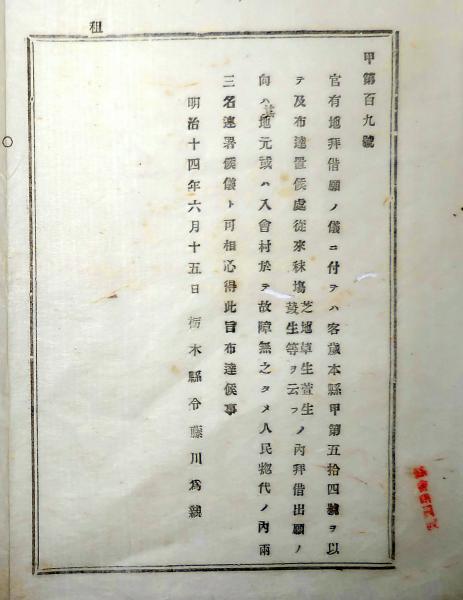 租
甲第百九號
官有地拜借願ノ儀ニ付テハ客歲本縣甲第五拾四號ヲ以
テ及布達置候處從來秣塲芝地草生萱生葭生等ヲ云フノ內拜借出願ノ
向ハ其地元或ハ入會村於テ故障無之タメ人民惣代ノ內兩
三名連署候儀ト可相心得此旨布達候事
明治十四年六月十五日 栃木縣令藤川爲親